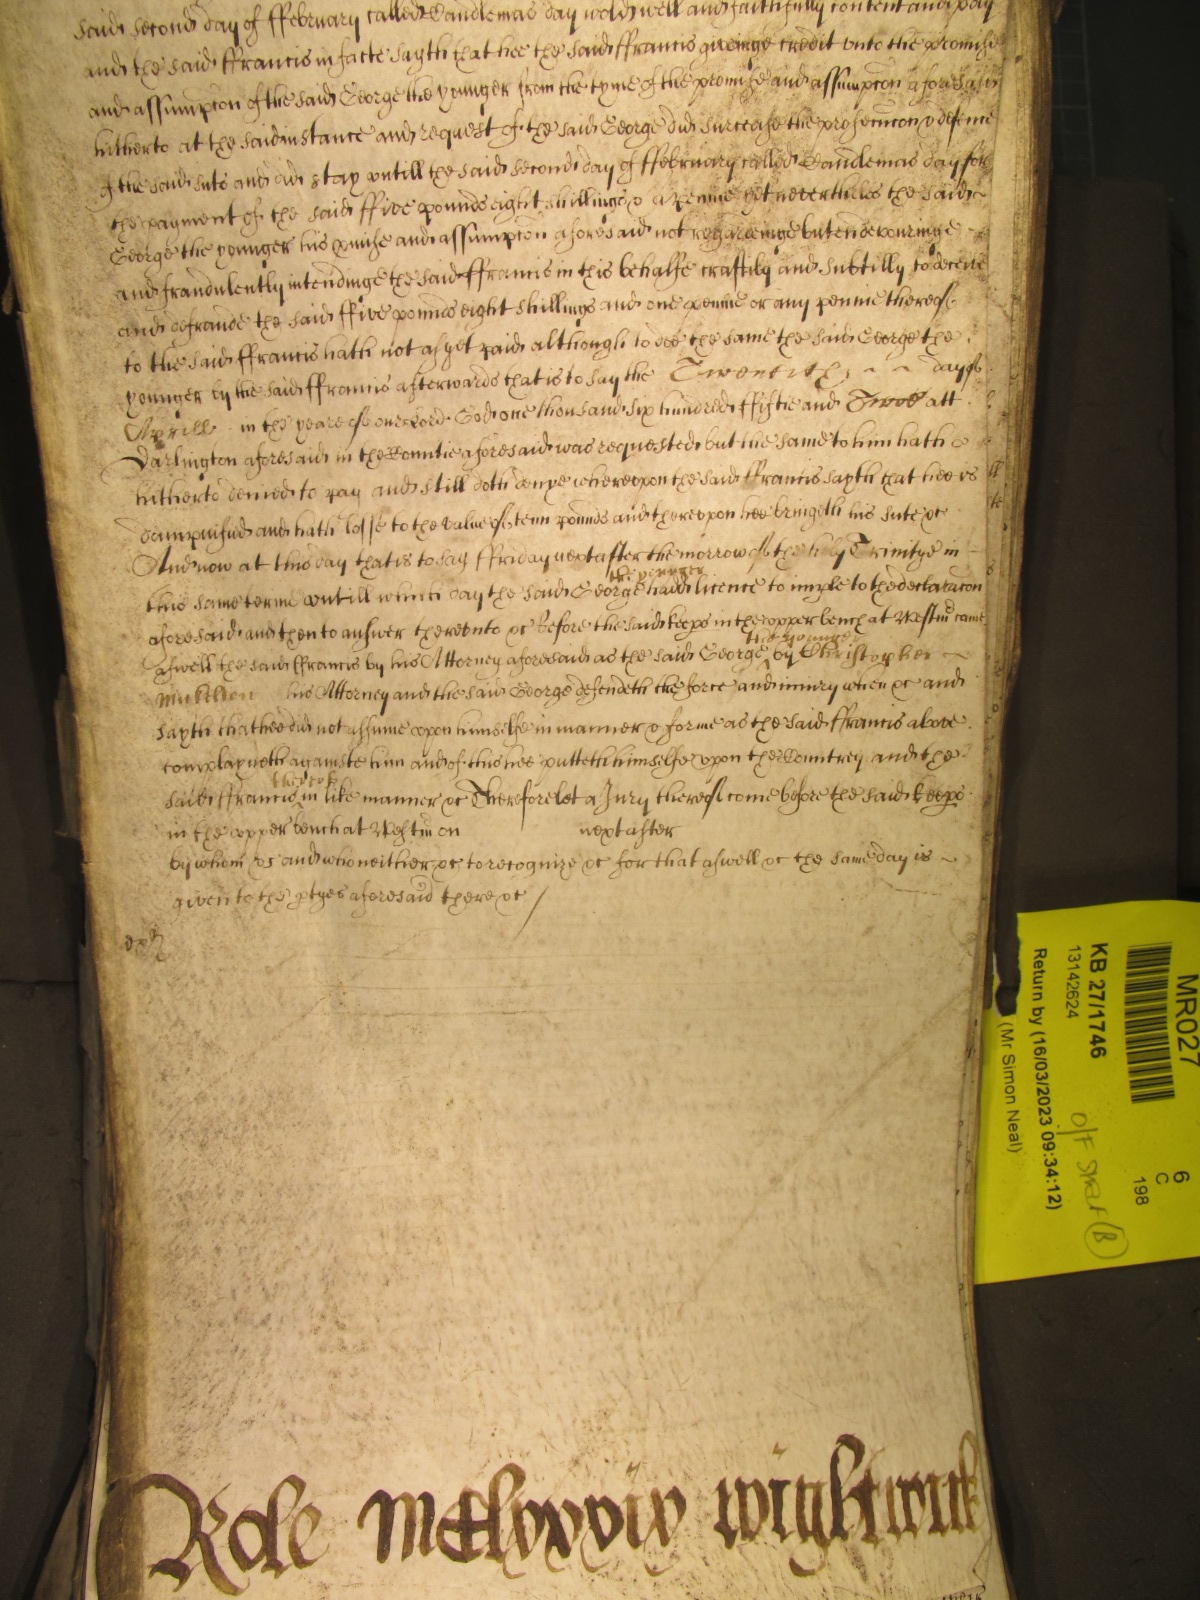 said second day of ffebruary called Candlemas day wold well and faithfully content and pay
and the said ffrancis in facte sayth that hee the said ffrancis giveinge credit unto the promise
and assumpcon of the said George the younger from the tyme of the promise and assumpcon aforesaid
hitherto at the said instance and request of the said George did surcease the prosecucon & defence
of the said sute and did stay untill the said second day of ffebruary called Candlemas day for
the payment of the said ffive pounds eight shillings & a pennie yet nevertheles the said
George the younger his pmise and assumpcon aforesaid not regardeinge but endevouringe
and fraudulently intendinge the said ffrancis in this behalfe craftily and subtilly to deceive
and defraude the said ffive pounds eight shillings and one pennie or any pennie thereof
to the said ffrancis hath not as yet paid although to doe the same the said George the
younger by the said ffrancis afterwards that is to say the Twentieth day of
Aprill in the yeare of our Lord God one thousand six hundred ffiftie and Twoe att
Darlington aforesaid in the Countie aforesaid was requested but the same to him hath
hitherto denied to pay and still doth denye whereupon the said ffrancis sayth that hee is
dampnified and hath losse to the value of tenn pounds and thereupon hee bringeth his sute &c
And now at this day that is to say ffriday next after the morrow of the holy Trinitye in
this same terme untill which day the said George the younger had licence to imple to the declaracon
aforesaid and then to answer thereunto &c before the said keeps in the upper bench at Westm came
aswell the said ffrancis by his Attorney aforesaid as the said George the younger by Christopher
his Attorney and the said George defendeth the force and iniury when &c and
sayth that hee did not assume upon himselfe in manner & forme as the said ffrancis above
complayneth againste him and of this hee putteth himselfe upon the Countrey and the
said ffrancis thereof in like manner &c Therefore let a Jury thereof come before the said keeps
in the upper bench at Westm on next after
by whom &c and who neither &c to recognize &c for that aswell &c the same day is
given to the ptyes aforesaid there &c /
Role wightwick
MR027
6
C
198
KB 27/1746
13142624
O/F Straf (B)
Return by (16/03/2023 09:34:12)
(Mr Simon Neal)